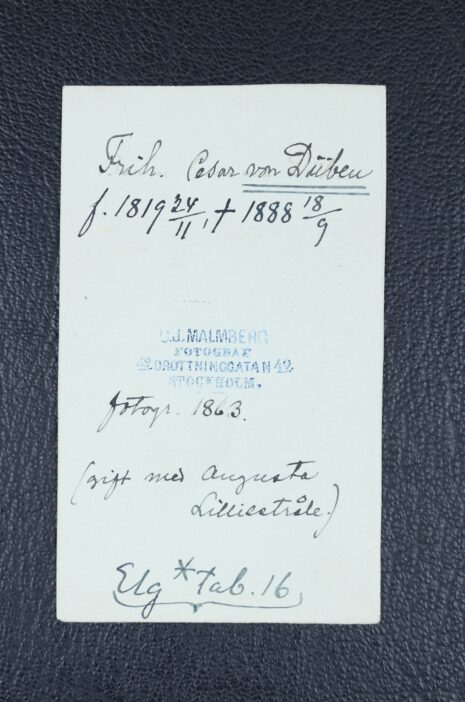 Frih. Cesar von Düben
f. 1819 24/11, † 1888 18/9
C.J. MALMBERG
FOTOGRAF
42 DROTTNINGGATAN 42
STOCKHOLM.
fotogr. 1863.
(gift med Augusta
Lilliestråle.)
Elg * Tab. 16